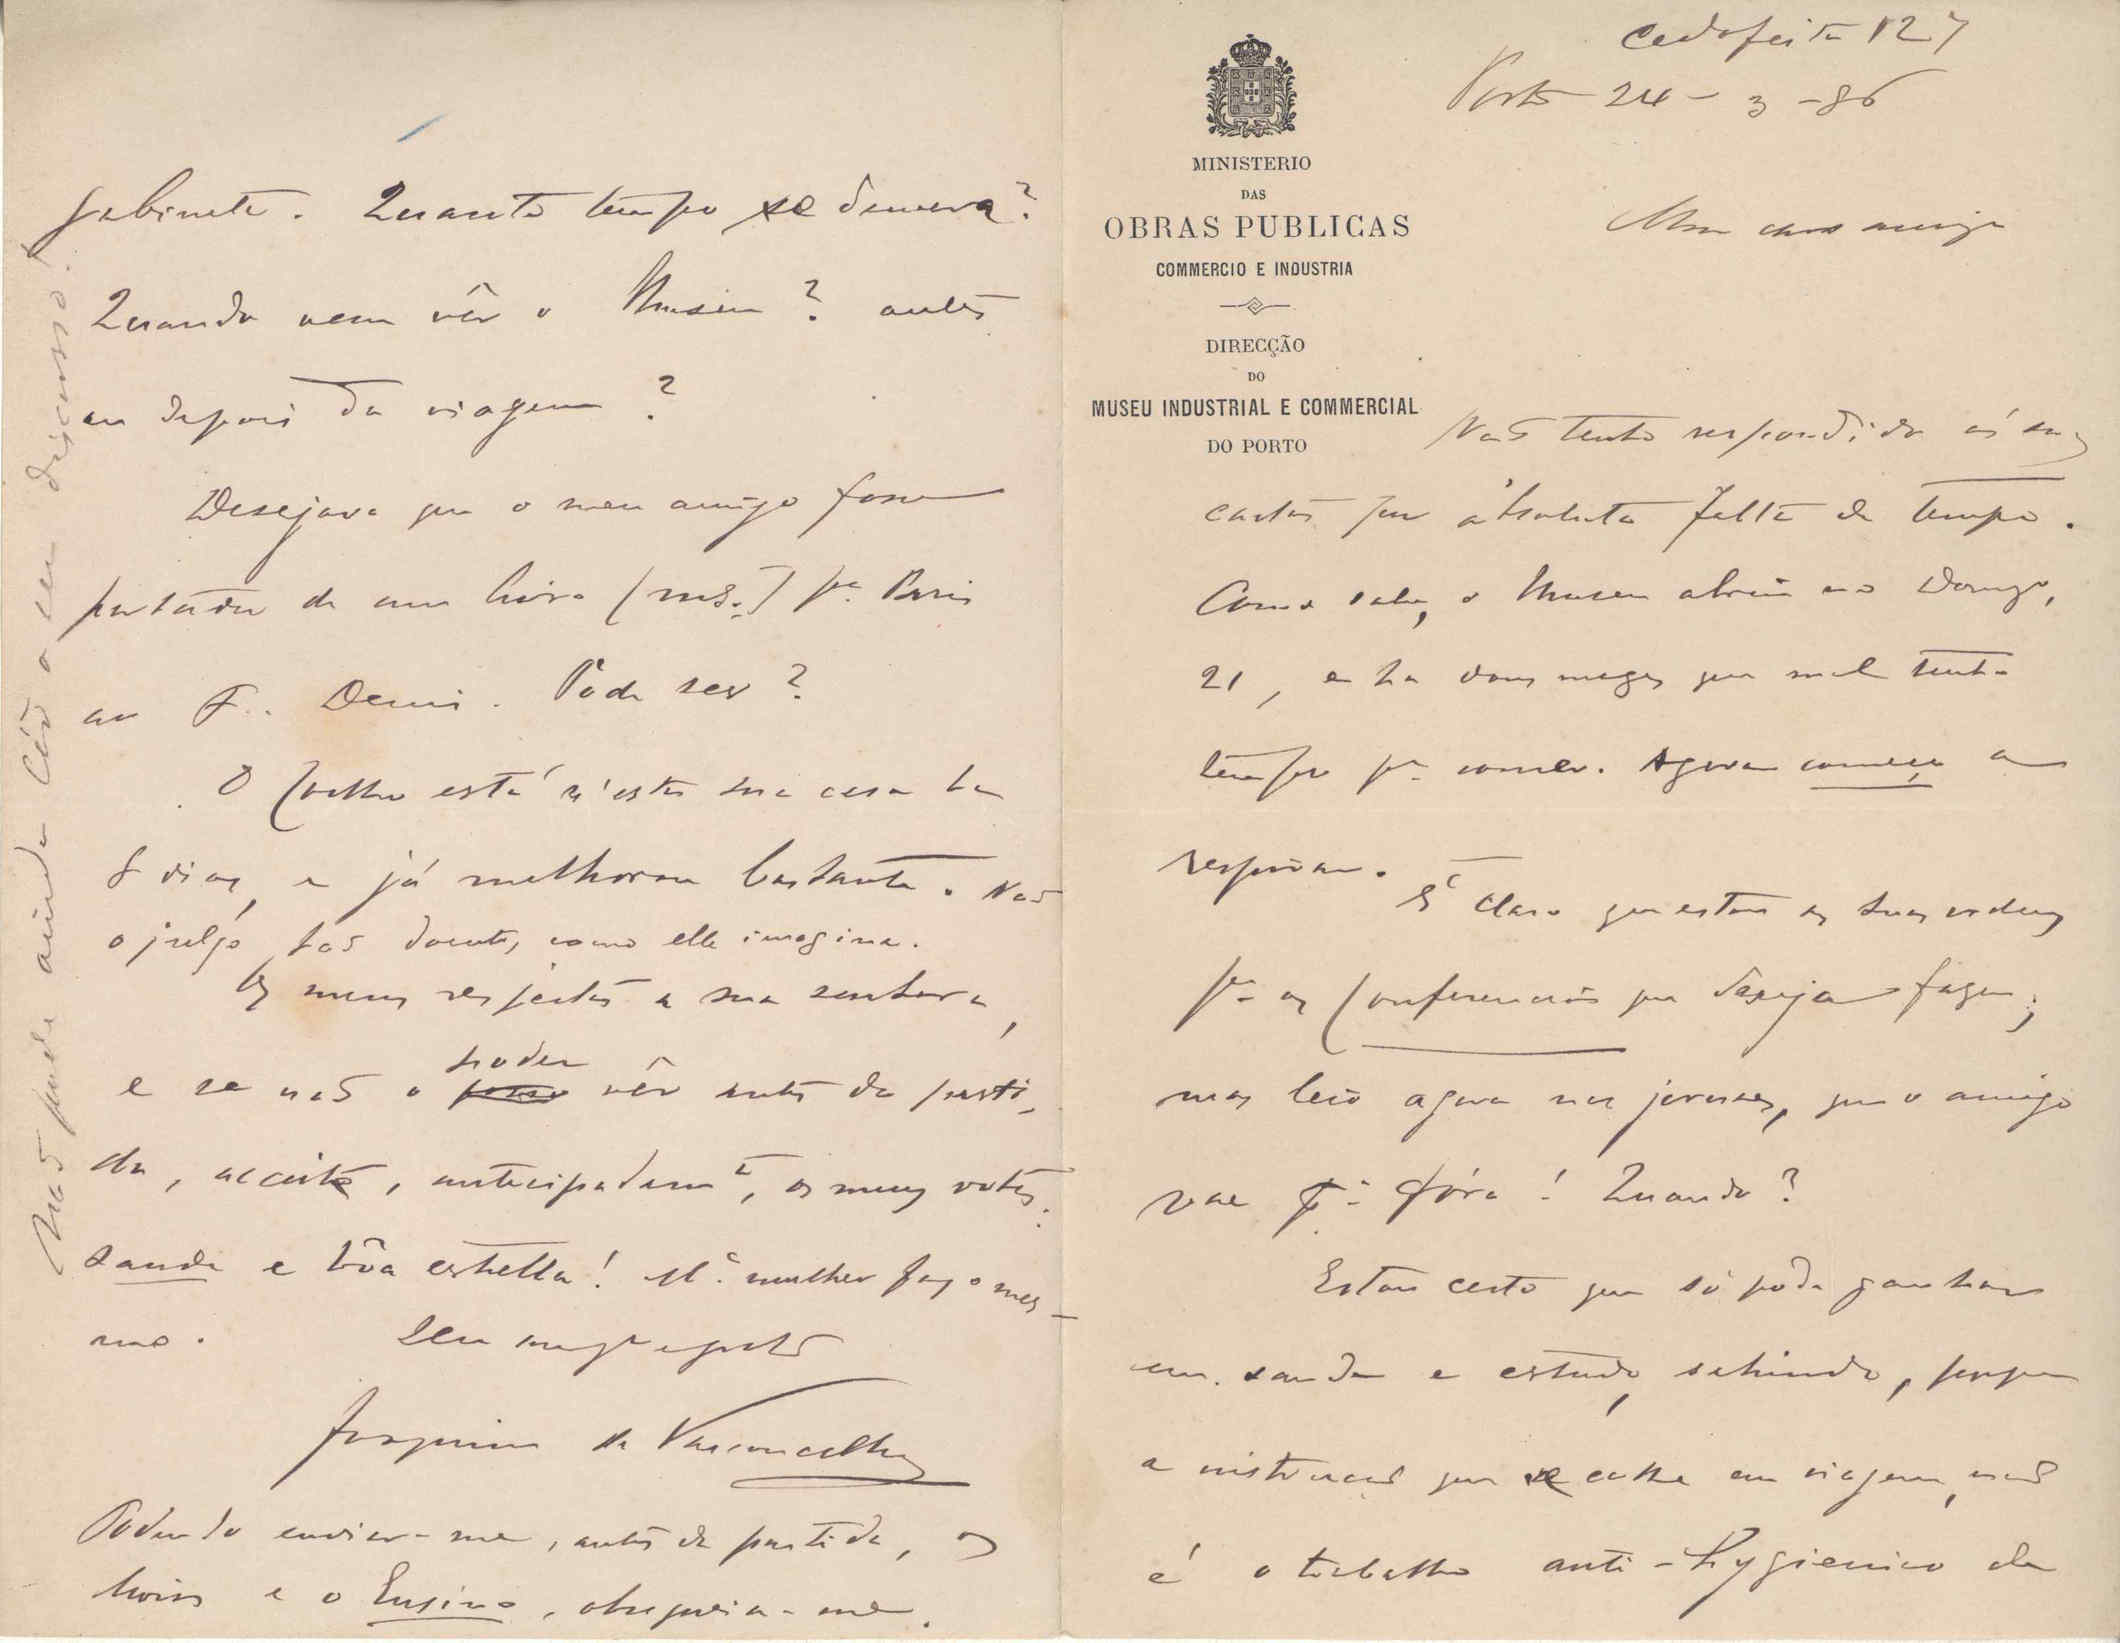 Cedofeita 127
Porto 24 - 3 - 86
MINISTERIO
DAS
OBRAS PUBLICAS
COMMERCIO E INDUSTRIA
DIRECÇÃO
DO
MUSEU INDUSTRIAL E COMMERCIAL
DO PORTO
Meu caro amigo
Não tenho respondido ás suas
cartas por absoluta falta de tempo.
Como sabe, o Museu abriu no Domgo,
21, e ha dous mezes que mal tenho
tempo pª comer. Agora começo a
respirar.
É claro que estou ás suas ordens
pª as Conferencias que deseja fazer;
mas leio agora nos jornaes, que o amigo
vae pª fóra! Quando?
Estou certo que só póde ganhar
em saude e estudo, sahindo, porque
a instrucção que se colhe em viagem, não
é o trabalho anti-hygienico de
gabinete. Quanto tempo se demora?
Quando vem vêr o Museu? antes
ou depois da viagem?
Desejava que o meu amigo fosse
portador de um livro (ms.) pª Paris
ao F. Denis. Póde ser?
O Coelho está n'esta sua casa ha
8 dias, e já melhorou bastante. Não
o julgo tão doente, como elle imagina.
Os meus respeitos a sua senhora,
e se não o poder
posso vêr antes da parti-
da, acceite, antecipadamte, os meus votos:
saude e bôa estrella! Mª mulher faz o mes-
mo.
Seu amgº e
Joaquim de Vasconcellos
Podendo enviar-me, antes da partida, os
livros e o Ensino, obsequeia-me.
Não pude ainda lêr o seu discurso!